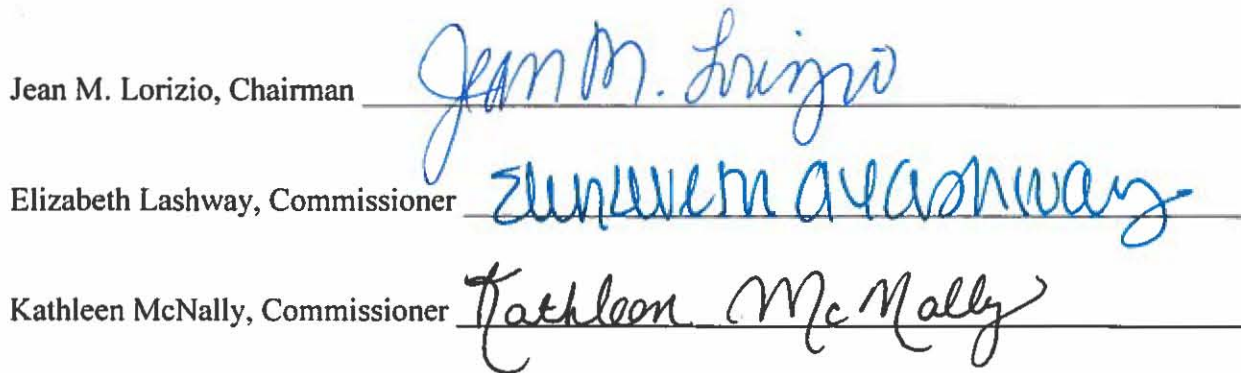 Jean M. Lorizio, Chairman Jean M. Lorizio
Elizabeth Lashway, Commissioner Elizabeth A Lashway
Kathleen McNally, Commissioner Kathleen McNally